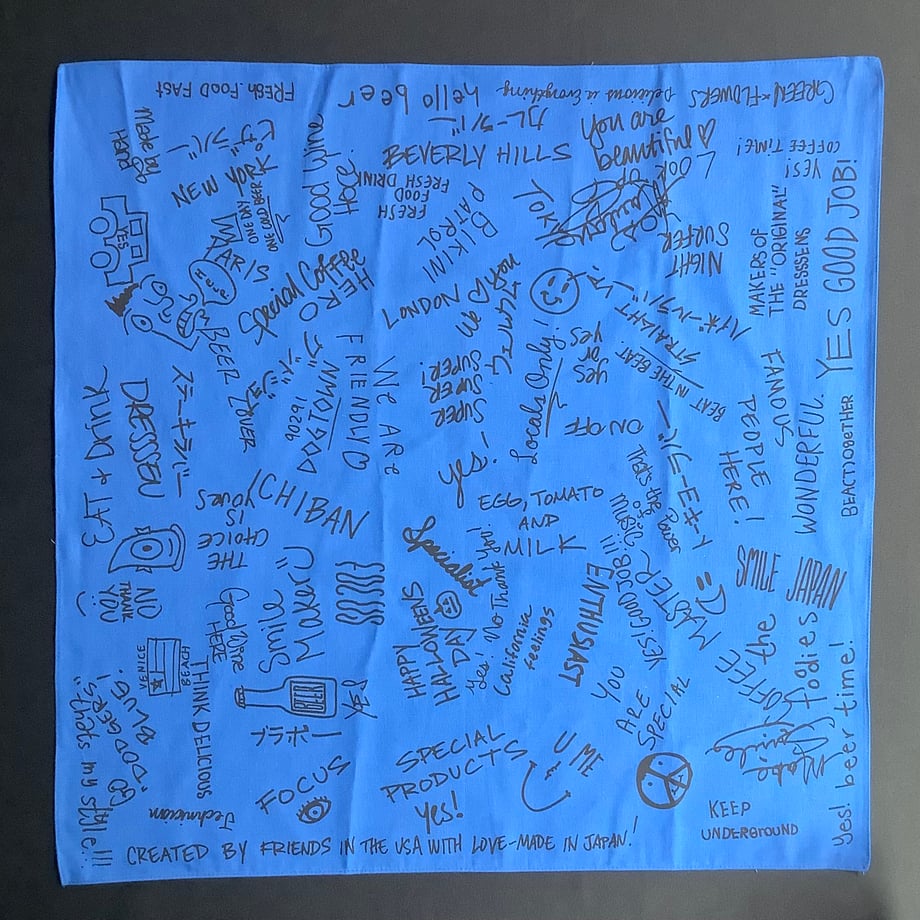 GREEN × FLOWERS
Delicious is Everything
hello beer
FRESH FOOD FAST
Made by
Hand
ピザラバー
NEW YORK
ONE DAY
ONE COLD BEER
Good Wine
Here.
BEVERLY HILLS
カレーラバー
You are
beautiful♡
COFFEE TIME!
YES!
YES GOOD JOB!
FRESH
FOOD
FRESH DRINK
BIKINI
PATROL
TOKYO
LOOK UP
NIGHT
SURFER
MAKERS OF
THE "ORIGINAL"
DRESSSENS
YES
PARIS
Special Coffee
HERO
LONDON
We ♡ you
BEER
Locals Only!
STRAIGHT
BEAT IN THE BEAT.
yes
or
yes
SUPER
SUPER
SUPER!
FRIENDLY
We ARe
90291
DOGTOWN
DRESSSEN
ステーキラバー
EAT +
ON OFF
FAMILY
SOUND
PEOPLE
HERE!
WONDERFUL
BEACTOGETHER
yes!
ICHIBAN
THE
CHOICE
IS
YOURS
EGG, TOMATO
AND
MILK
Specialist
That's the Power
SMILE JAPAN
NO
THANK
YOU
Good Wine
HERE
Smile
Maker
HAPPY
HALLOWEENS
DAY
Yes! No Thank You!
California
feelings
ENTHUSIAST
YES! GOOD JOB!!!
MASTER
COFFEE
the
foodies
VENICE
BEACH
THINK DELICIOUS
BEER
YOU
ARE
SPECIAL
"DODGER
BLUE"!
thats my style!!!
FOCUS
SPECIAL
PRODUCTS
yes!
U
ME
Make
Smile
KEEP
UNDERGROUND
yes! beer time!
Technician
CREATED BY FRIENDS IN THE USA WITH LOVE-MADE IN JAPAN!